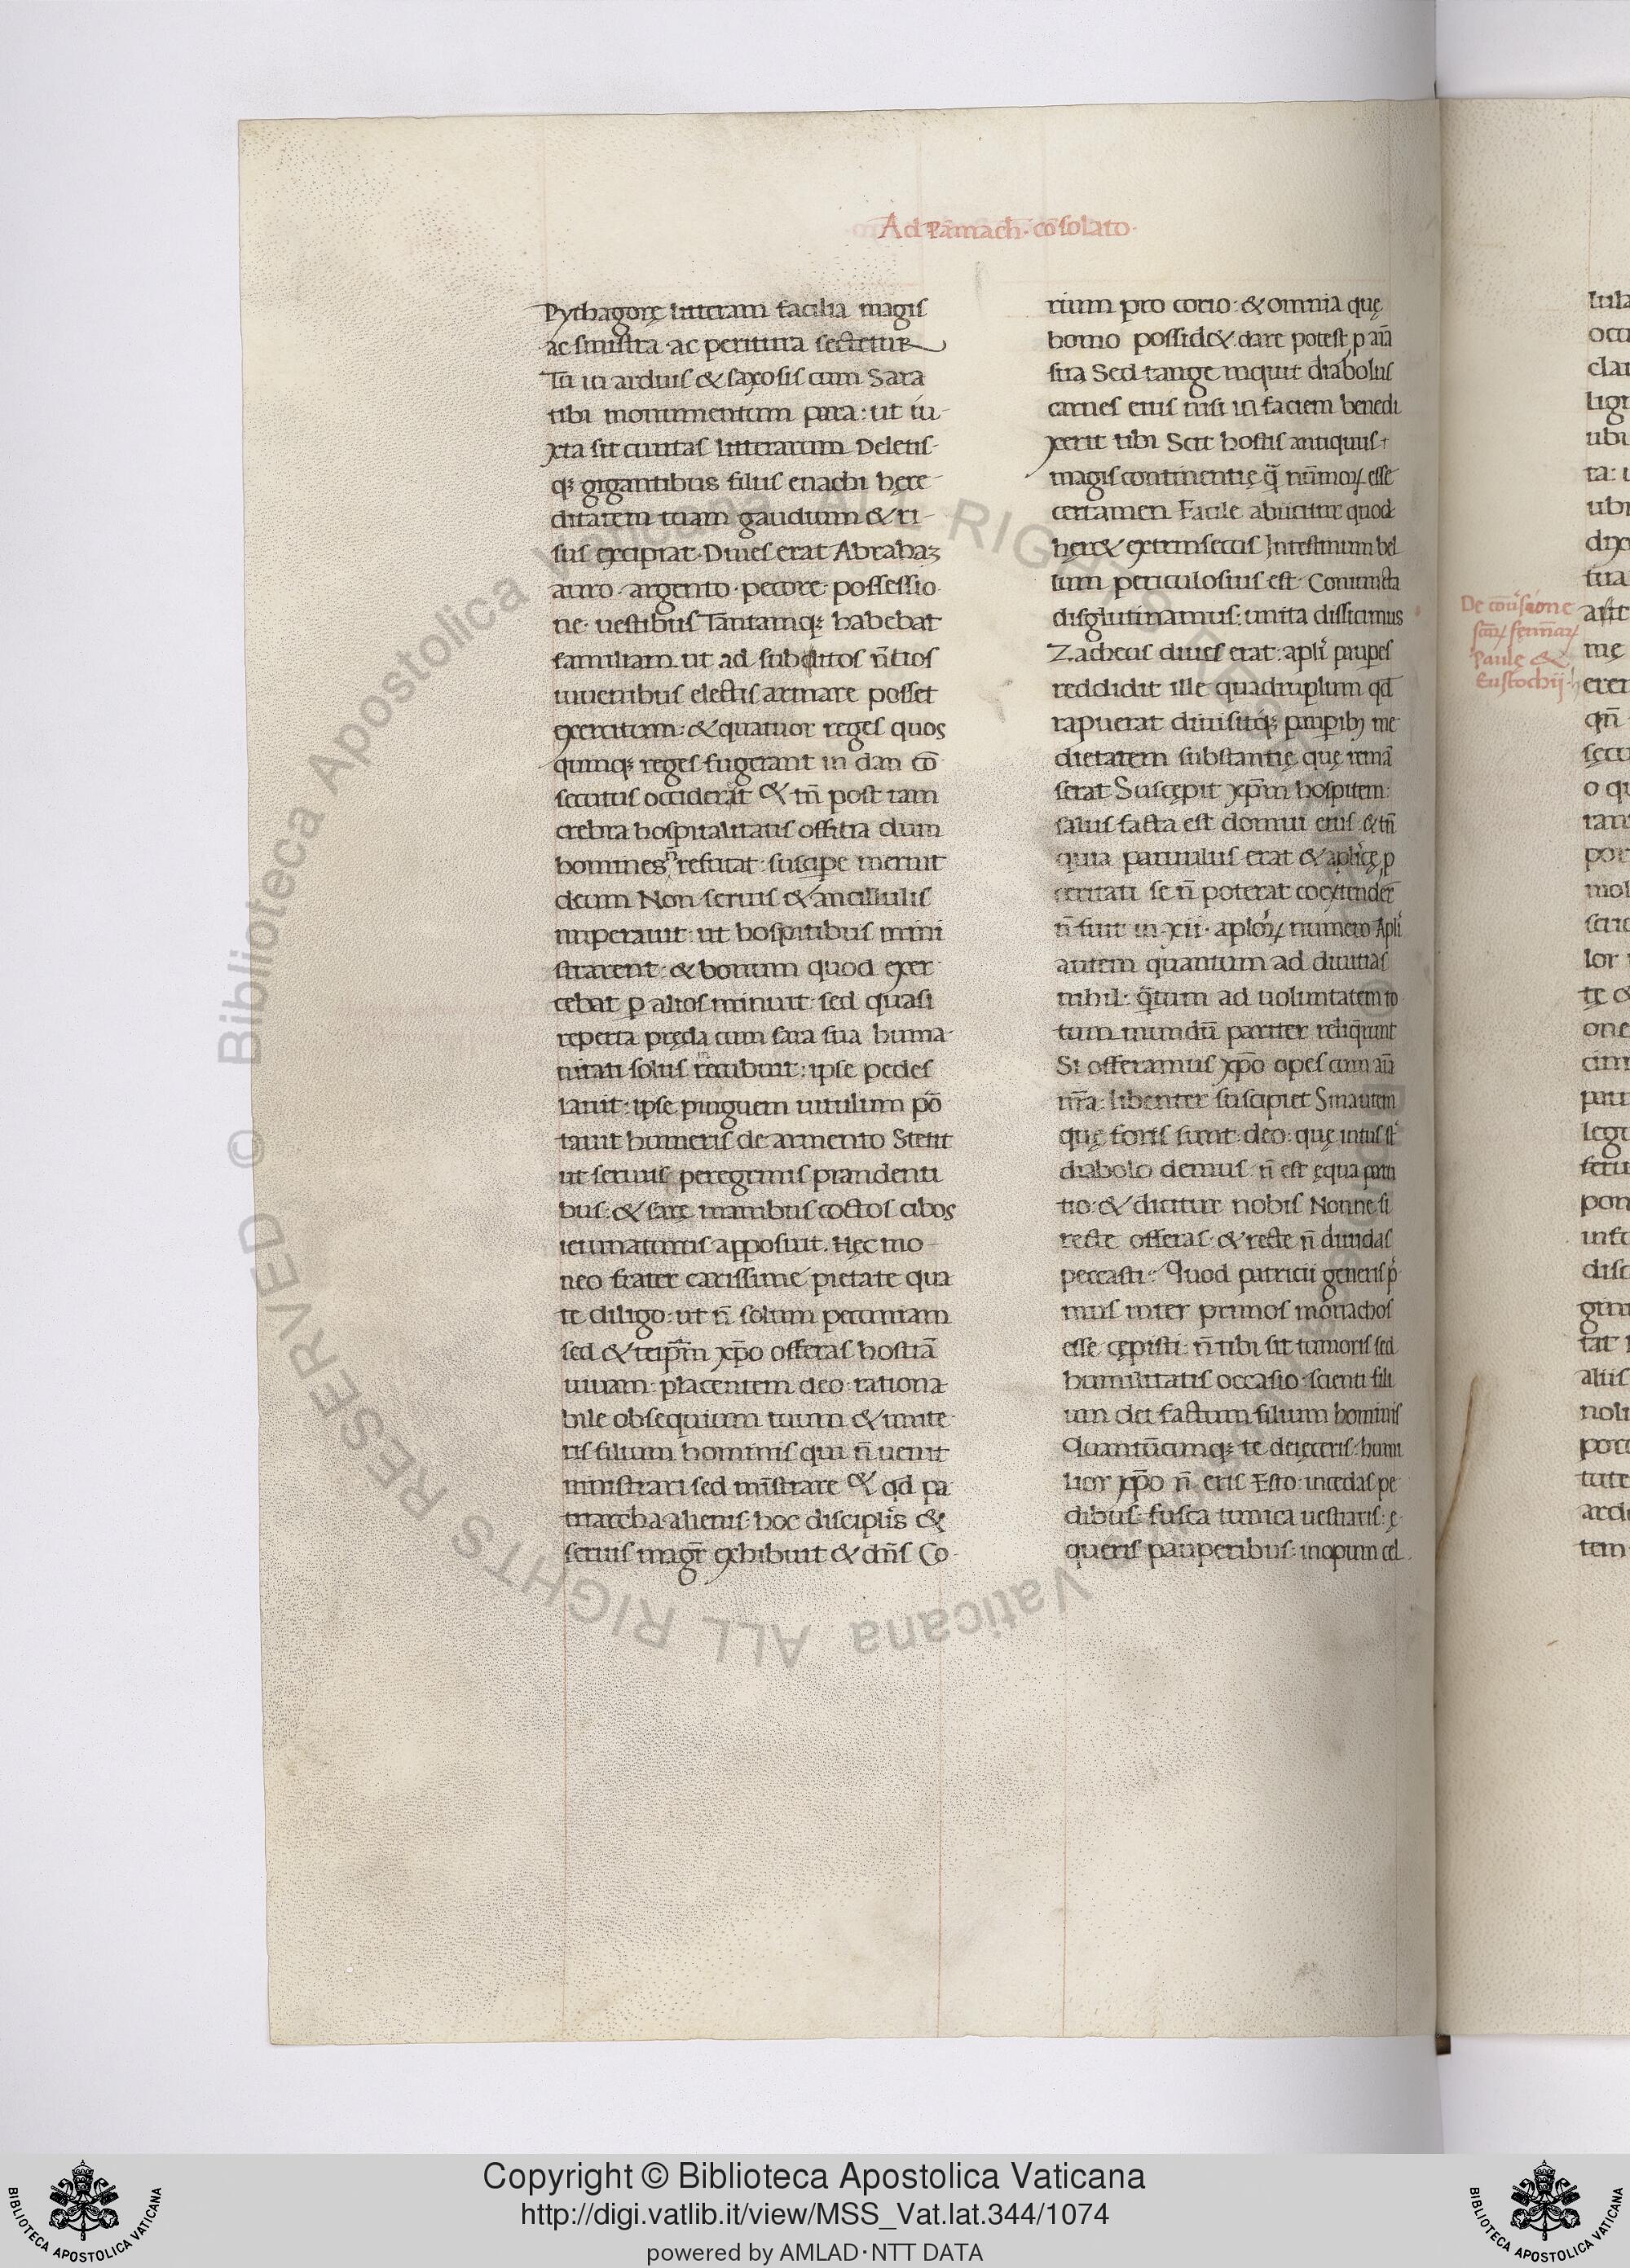 Ad Pāmach· cōsolato·
Pythagorę litteram facilia magis
ac sinistra· ac peritura sectetur
Tū in arduis & saxosis cum Sara
tibi monumentum para: ut iu-
xta sit ciuitas litterarum Deletis-
qꝫ gigantibus filiis enachi hęre-
ditatem tuam gaudium & ri-
sus excipiat· Diues erat Abrahaꝫ
auro· argento· pecore· possessio
ne· uestibus Tantamqꝫ habebat
familiam ut ad subditos n̄tios
iuuenibus electis armare posset
exercitum: & quatuor reges quos
quinqꝫ reges fugerant in dan cō
secutus occiderat & tn̄ post tam
crebra hospitalitatis offitia dum
homines n̄ refutat: suscipe meruit
deum Non seruis & ancillulis
imperauit: ut hospitibus mini
strarent: & bonum quod exer-
cebat ꝑ alios minuit: sed quasi
reperta pręda cum sara sua huma-
nitati solus incubuit: ipse pedes
lauit: ipse pinguem uitulum pō
tauit humeris de armento Stetit
ut seruus peregrinis prandenti
bus: & sarę manibus coctos cibos
ieiunaturus apposuit. Hęc mo-
neo frater carissime pietate qua
te diligo: ut n̄ solum pecuniam
sed & teip̄m xp̄o offeras hostiā
uiuam: placentem deo: rationa
bile obsequium tuum & imite-
ris filium hominis qui n̄ uenit
ministrari sed mīstrare & qd̄ pa
triarcha alienis· hoc disciplis &
seruis magr̄ exhibuit & dn̄s Co-
rium pro corio: & omnia quę
homo possid&· dare potest ꝑ aīa
sua Sed tange inquit diabolus
carnes eius nisi in faciem benedi
xerit tibi Scit hostis antiquus
magis continentię q̄ nūmoꝝ esse
certamen Facile abiicitur quod
hęr& extrinsecus Intestinum bel
lum periculosius est· Coniuncta
disglutinamus: unita dissuimus
Zacheus diues erat: apli paupes
reddidit ille quadruplum qd̄
rapuerat diuisitqꝫ paupibꝫ me
dietatem substantię quę remā
serat Suscępit xp̄m hospitem:
salus facta est domui eius & tn̄
quia paruulus erat & aplicę p
ceritati se n̄ poterat coextender̄
n̄ fuit in xii· aploꝝ numero Apli
autem quantum ad diuitias
nihil· q̄tum ad uoluntatem to
tum mundū pariter reliq̄runt
Si offeramus xp̄o opes cum aīa
nr̄a: libenter suscipiet Sinautem
quę foris sunt: deo: quę intus st̄
diabolo demus: n̄ est ęqua parti
tio: & dicitur nobis Nonne si
recte offeras· & recte n̄ diuidas
peccasti· Quod patricii generis p
mus inter primos monachos
esse cępisti: n̄ tibi sit tumoris sed
humilitatis occasio· scienti fili
um dei factum filium hominis
Quantūcumqꝫ te deięceris: humi
lior xp̄o n̄ eris Esto: incedas pe
dibus: fusca tunica uestiaris: ę
queris pauperibus: inopum cel
De cōuersione
scāꝝ femīaꝝ
Paulę &
Eustochij·
Copyright © Biblioteca Apostolica Vaticana
http://digi.vatlib.it/view/MSS_Vat.lat.344/1074
powered by AMLAD·NTT DATA
BIBLIOTECA APOSTOLICA VATICANA
BIBLIOTECA APOSTOLICA VATICANA
© Biblioteca Apostolica Vaticana ALL RIGHTS RESERVED